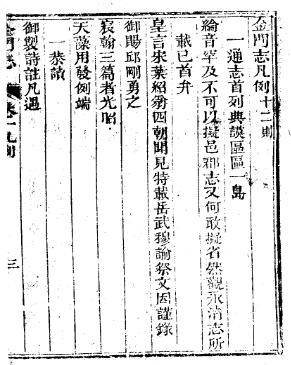 金門志凡例十二則
一通志首列典謨區區一島
綸音罕及不可以擬邑郡志又何敢擬省然觀永清志所
載已首弁
皇言宋葉紹翁四朝聞見特載岳武穆諭祭文因謹錄
御賜邱剛勇之
宸翰三篇者光昭
天藻用發例端
一恭讀
御製詩註凡遇
金門志
凡例
三